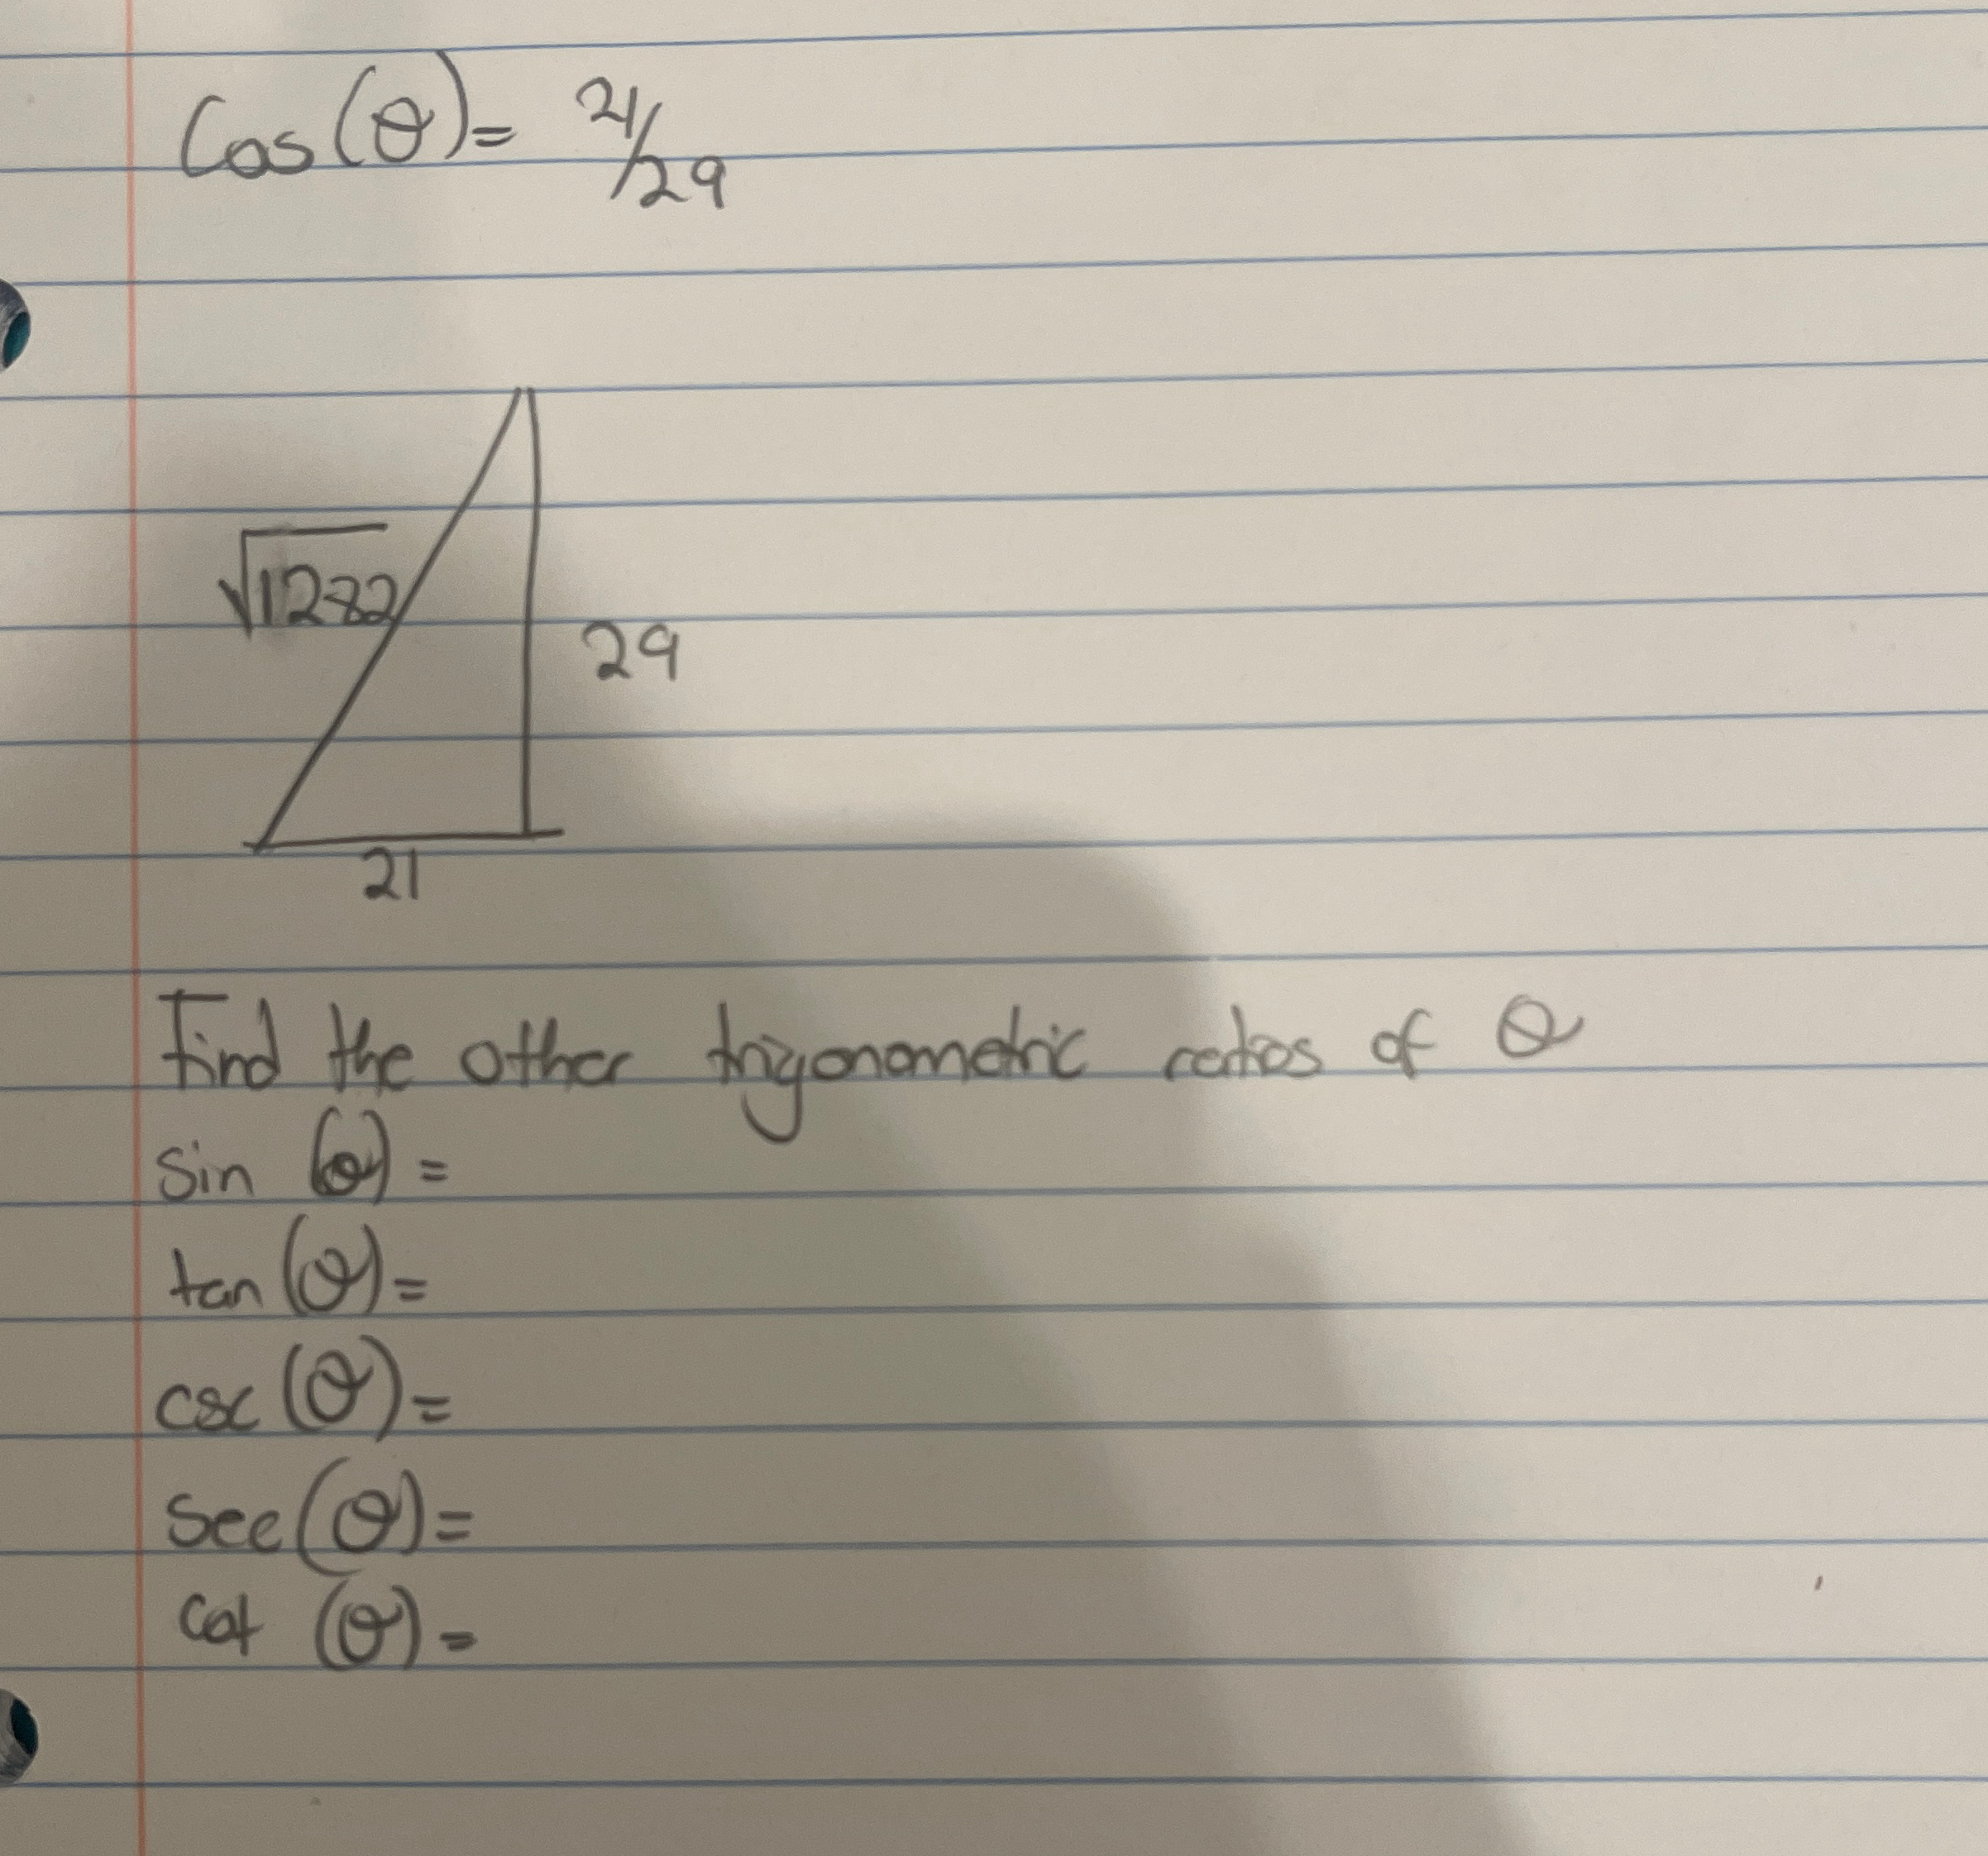 Cos(θ)= 21/29
√1282
29
21
Find the other trigonometric ratios of θ
sin (θ) =
tan (θ) =
csc (θ) =
sec (θ) =
cot (θ) =